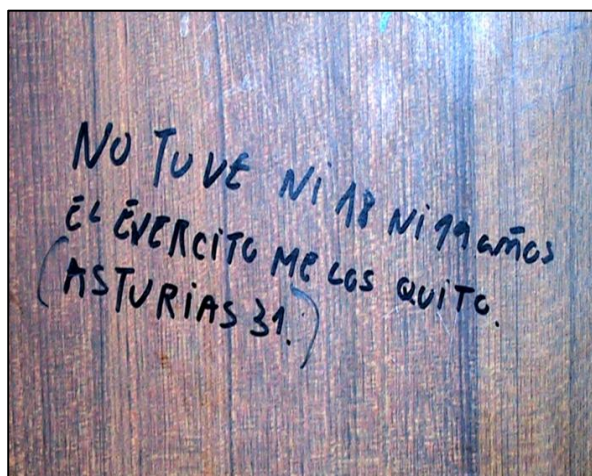 NO TUVE Ni 18 Ni 19 años
EL EVERCiTO Me LOS QUiTO.
(ASTURiAS 31.)